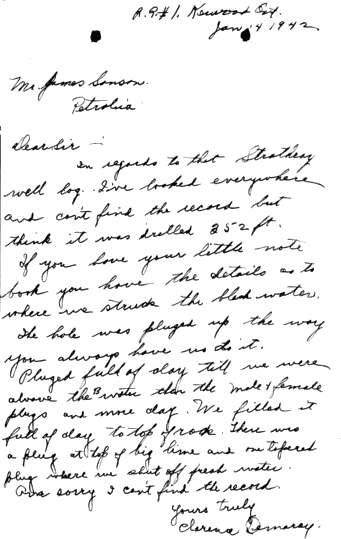 R.R.#1. Kerwood Ont.
Jan 14 1942
Mr. James Sanson.
Petrolia
Dear Sir -
In regards to that Strathroy
well log. I've looked everywhere
and can't find the record but
think it was drilled 352 ft.
If you have your little note
book you have the details as to
where we struck the black water.
The hole was pluged up the way
you always have us do it.
Pluged full of clay till we were
above the B water then the male & female
plugs and more clay. We filled it
full of clay to top of rock. There was
a plug at top of big lime and one tapered
plug where we shut off fresh water.
sorry I can't find the record.
Yours truly